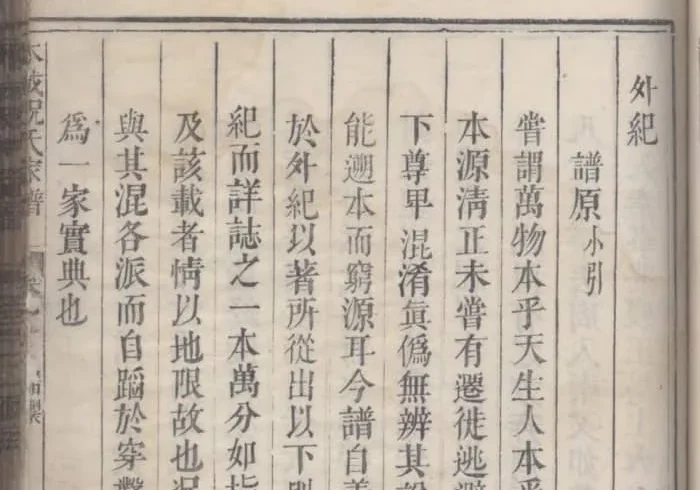 外紀
譜原小引
嘗謂萬物本乎天生人本乎
本源淸正未嘗有遷徙逃避
下尊卑混淆眞僞無辨其
能遡本而窮源耳今譜自
於外紀以著所從出以下則
紀而詳誌之一本萬分如指
及該載者情以地限故也況
與其混各派而自蹈於穿鑿
為一家實典也
氏家譜